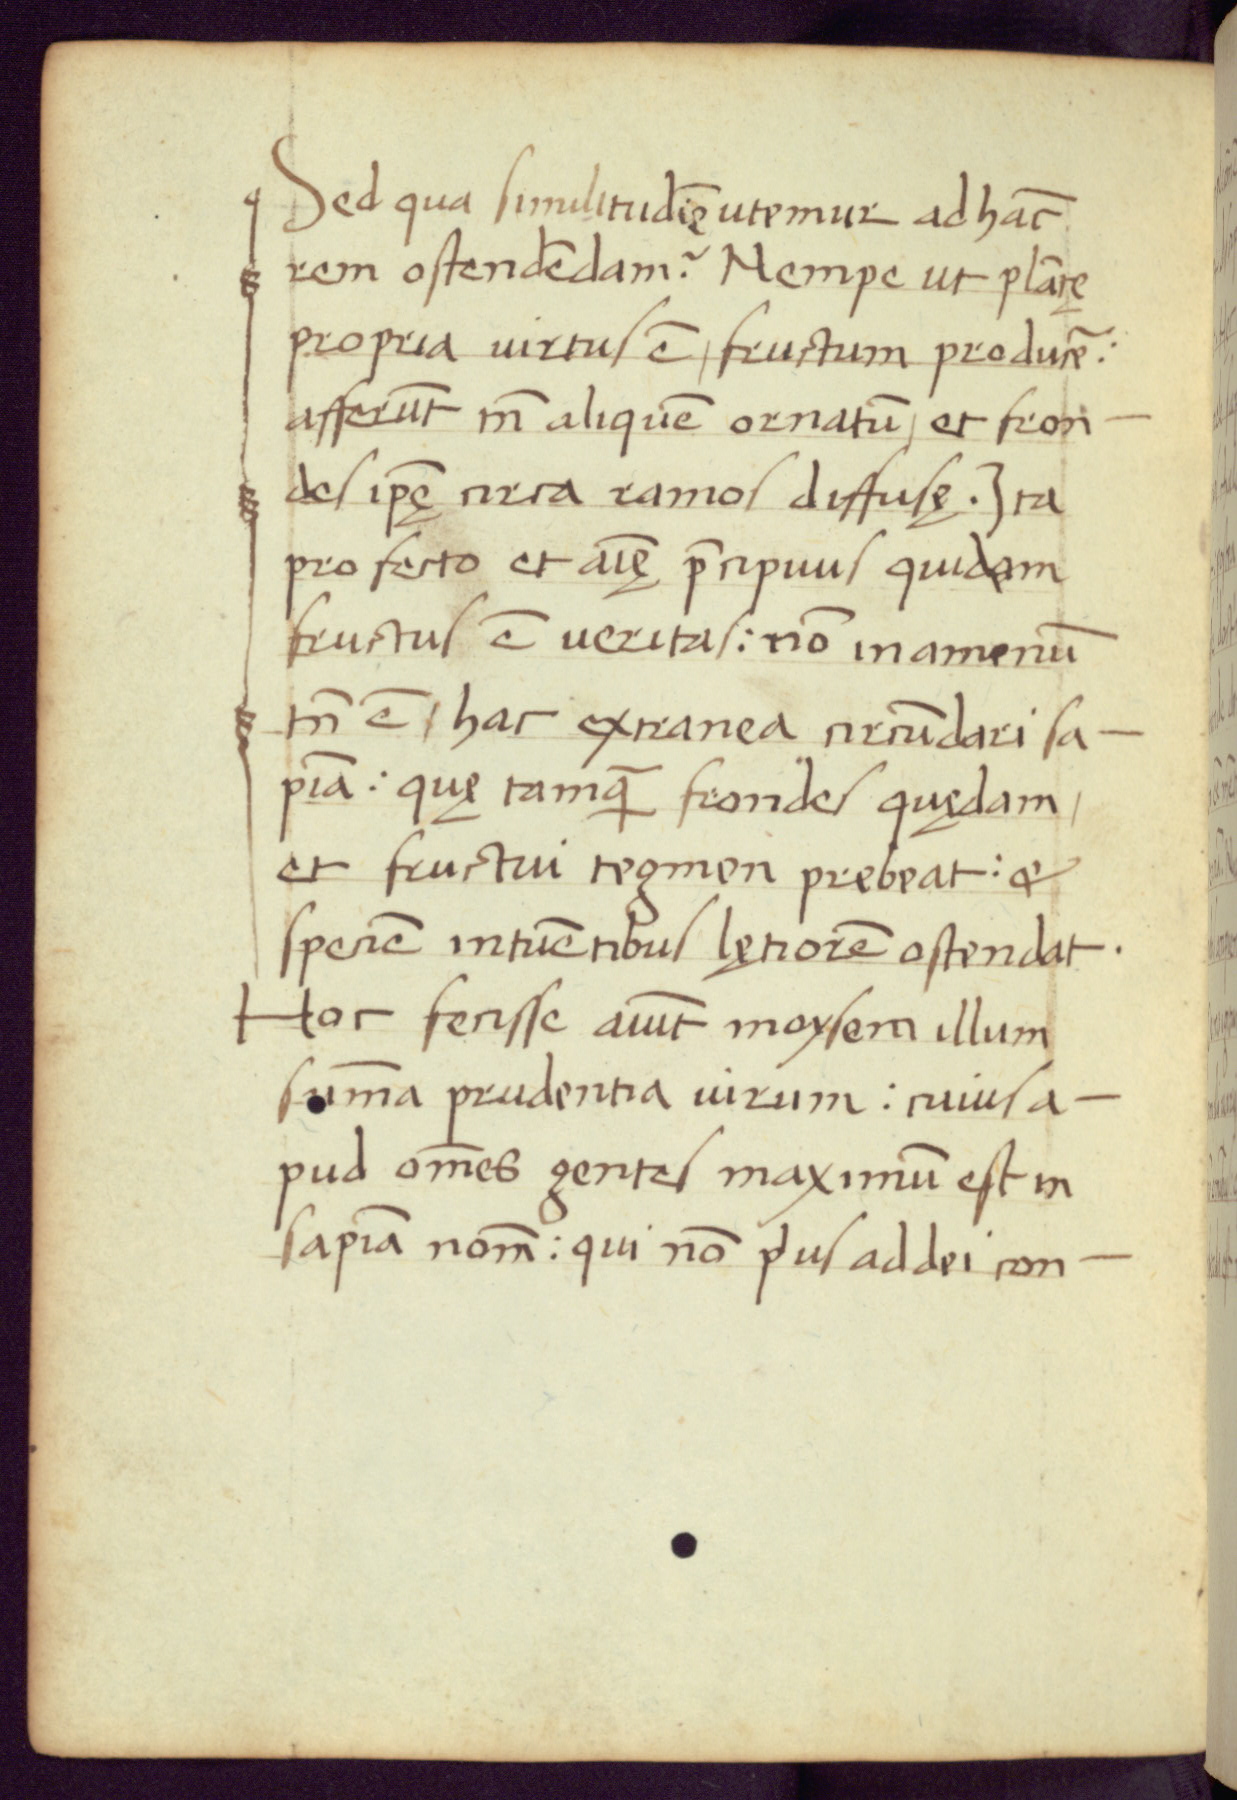 Sed qua similitudīę utemur ad hāc
rem ostendēdam? Nempe ut plātę
propria uirtus ē, fructum producē:
afferūt tn̄ aliquē ornatū, et fron—
des ip̄ę circa ramos diffusę. Ita
profecto et aīę p̄cipuus quidam
fructus ē ueritas: nō inamenū
tn̄ ē, hac extranea circūdari sa—
pīa: quę tamq̄ frondes quędam,
et fructui tegmen prebeat: &
speciē intuētibus lętiorē ostendat.
Hoc fecisse aiūt moysem illum
sum̄a prudentia uirum: cuius a—
pud om̄es gentes maximū est in
sapīa nom̄: qui nō p̄us ad dei con—